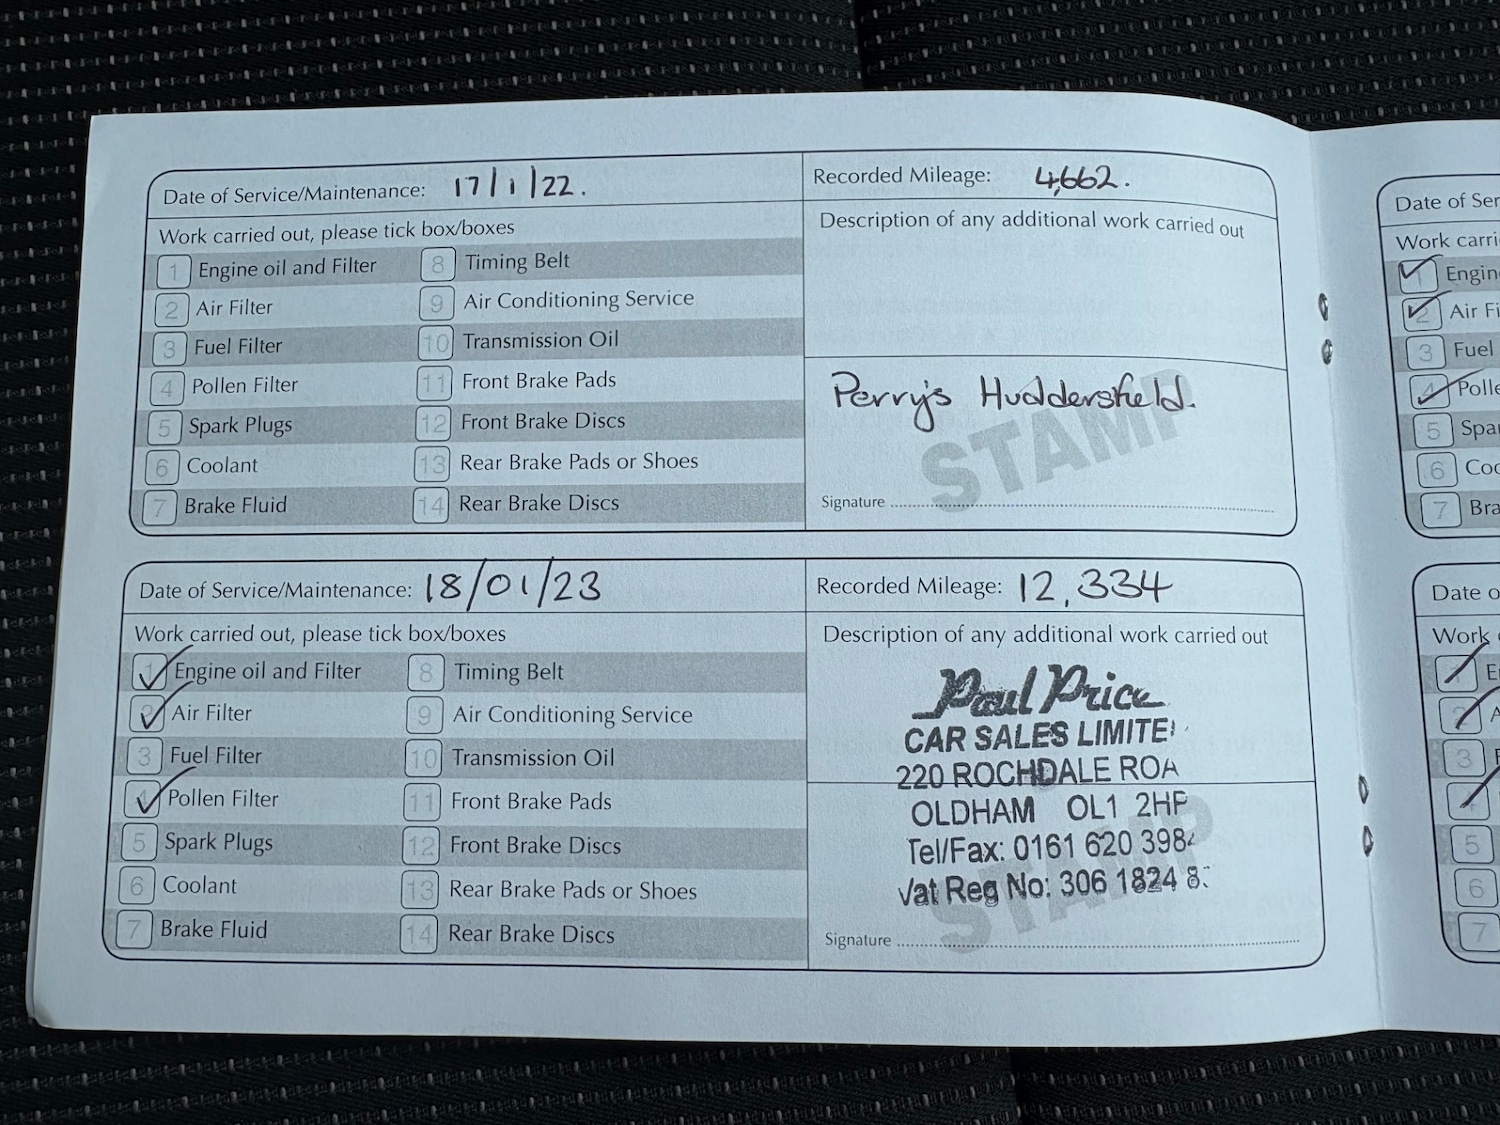 Date of Service/Maintenance: 17/1/22.
Recorded Mileage: 4,662.
Work carried out, please tick box/boxes
1 Engine oil and Filter
2 Air Filter
3 Fuel Filter
4 Pollen Filter
5 Spark Plugs
6 Coolant
7 Brake Fluid
8 Timing Belt
9 Air Conditioning Service
10 Transmission Oil
11 Front Brake Pads
12 Front Brake Discs
13 Rear Brake Pads or Shoes
14 Rear Brake Discs
Description of any additional work carried out
Perry's Huddersfield.
STAMP
Signature
Date of Service/Maintenance: 18/01/23
Recorded Mileage: 12,334
Work carried out, please tick box/boxes
1 Engine oil and Filter
2 Air Filter
3 Fuel Filter
4 Pollen Filter
5 Spark Plugs
6 Coolant
7 Brake Fluid
8 Timing Belt
9 Air Conditioning Service
10 Transmission Oil
11 Front Brake Pads
12 Front Brake Discs
13 Rear Brake Pads or Shoes
14 Rear Brake Discs
Description of any additional work carried out
Paul Price
CAR SALES LIMITE
220 ROCHDALE ROA
OLDHAM OL1 2HP
Tel/Fax: 0161 620 398
Vat Reg No: 306 1824 8
STAMP
Signature
Date of Ser
Work carri
1 Engin
2 Air Fi
3 Fuel
4 Polle
5 Spa
6 Coo
7 Bra
Date o
Work
1 E
2 A
3
4
5
6
7